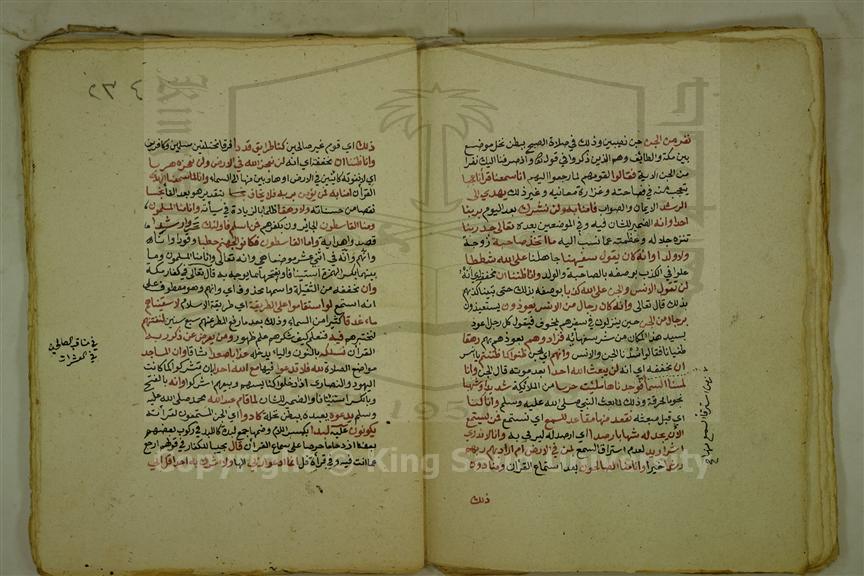 نفر من الجن جن نصيبين وذلك في صلاة الصبح ببطن نخل موضع
بين مكة والطائف وهم الذين ذكروا في قوله تعالى واذ صرفنا اليك نفرا
من الجن الاية فقالوا لقومهم لما رجعوا اليهم انا سمعنا قرآنا عجبا
يتعجب منه في فصاحته وغزارة معانيه وغير ذلك يهدي الى
الرشد الايمان والصواب فآمنا به ولن نشرك بعد اليوم بربنا
احدا وانه الضمير للشان فيه وفي الموضعين بعده تعالى جد ربنا
تنزه جلاله وعظمته عما نسب اليه ما اتخذ صاحبة زوجة
ولا ولدا وانه كان يقول سفيهنا جاهلنا على الله شططا
غلوا في الكذب بوصفه بالصاحبة والولد وانا ظننا ان مخففة اي انه
لن تقول الانس والجن على الله كذبا بوصفه بذلك حتى تبينا كذبهم
بذلك قال تعالى وانه كان رجال من الانس يعوذون يستعيذون
برجال من الجن حين ينزلون في سفرهم بمخوف فيقول كل رجل اعوذ
بسيد هذا المكان من شر سفهائه فزادوهم بعوذهم بهم رهقا
طغيانا فقالوا سدنا الجن والانس وانهم اي الجن ظنوا كما ظننتم يا انس
ان مخففة اي انه لن يبعث الله احدا بعد موته قال الجن وانا
لمسنا السماء فوجدناها ملئت حرسا من الملائكة شديدا وشهبا
نجوما محرقة وذلك لما بعث النبي صلى الله عليه وسلم وانا كنا
اي قبل مبعثه نقعد منها مقاعد للسمع اي نستمع فمن يستمع
الآن يجد له شهابا رصدا اي ارصد له ليرمى به وانا لا ندري
اشر اريد لعدم استراق السمع بمن في الارض ام اراد بهم ربهم
رشدا خيرا وانا منا الصالحون بعد استماع القرآن ومنا دون
ذلك
٢٣٤
ذلك اي قوم غير صالحين كنا طرائق قددا فرقا مختلفين مسلمين وكافرين
وانا ظننا ان مخففة اي انه لن نعجز الله في الارض ولن نعجزه هربا
اي لا نفوته كائنين في الارض او هاربين منها الى السماء وانا لما سمعنا الهدى
القرآن آمنا به فمن يؤمن بربه فلا يخاف بتقدير هو بعد الفا بخسا
نقصا من حسناته ولا رهقا ظلما بالزيادة في سيآته وانا منا المسلمون
ومنا القاسطون الجائرون بكفرهم فمن اسلم فاولئك تحروا رشدا
قصدوا هداية واما القاسطون فكانوا لجهنم حطبا وقودا وانا
وانهم وانه في اثني عشر موضعا هي وانه تعالى وانا منا المسلمون وما
بينهما بكسر الهمزة استينافا وبفتحها بما يوجه به قال تعالى في كفار مكة
وان مخففة من الثقيلة واسمها محذوف اي وانهم وهو معطوف على
انه استمع لو استقاموا على الطريقة اي طريقة الاسلام لاسقيناهم
ماء غدقا كثيرا من السماء وذلك بعد ما رفع المطر عنهم سبع سنين لنفتنهم
لنختبرهم فيه فنعلم كيف شكرهم علم ظهور ومن يعرض عن ذكر ربه
القرآن نسلكه بالنون والياء يدخله عذابا صعدا شاقا وان المساجد
مواضع الصلاة لله فلا تدعوا فيها مع الله احدا بان تشركوا كما كانت
اليهود والنصارى اذا دخلوا كنايسهم وبيعهم اشركوا وانه بالفتح
وبالكسر استينافا والضمير للشان لما قام عبد الله محمد صلى الله عليه
وسلم يدعوه يعبده ببطن نخلة كادوا اي الجن المستمعون لقراءته
يكونون عليه لبدا بكسر اللام وضمها جمع لبدة كاللبد في ركوب بعضهم
بعضا ازدحاما حرصا على سماع القرآن قال مجيبا للكفار في قولهم ارجع
عما انت فيه وفي قرأة قل انما ادعو ربي الها ولا اشرك به احدا قل اني
King Saud University
1957